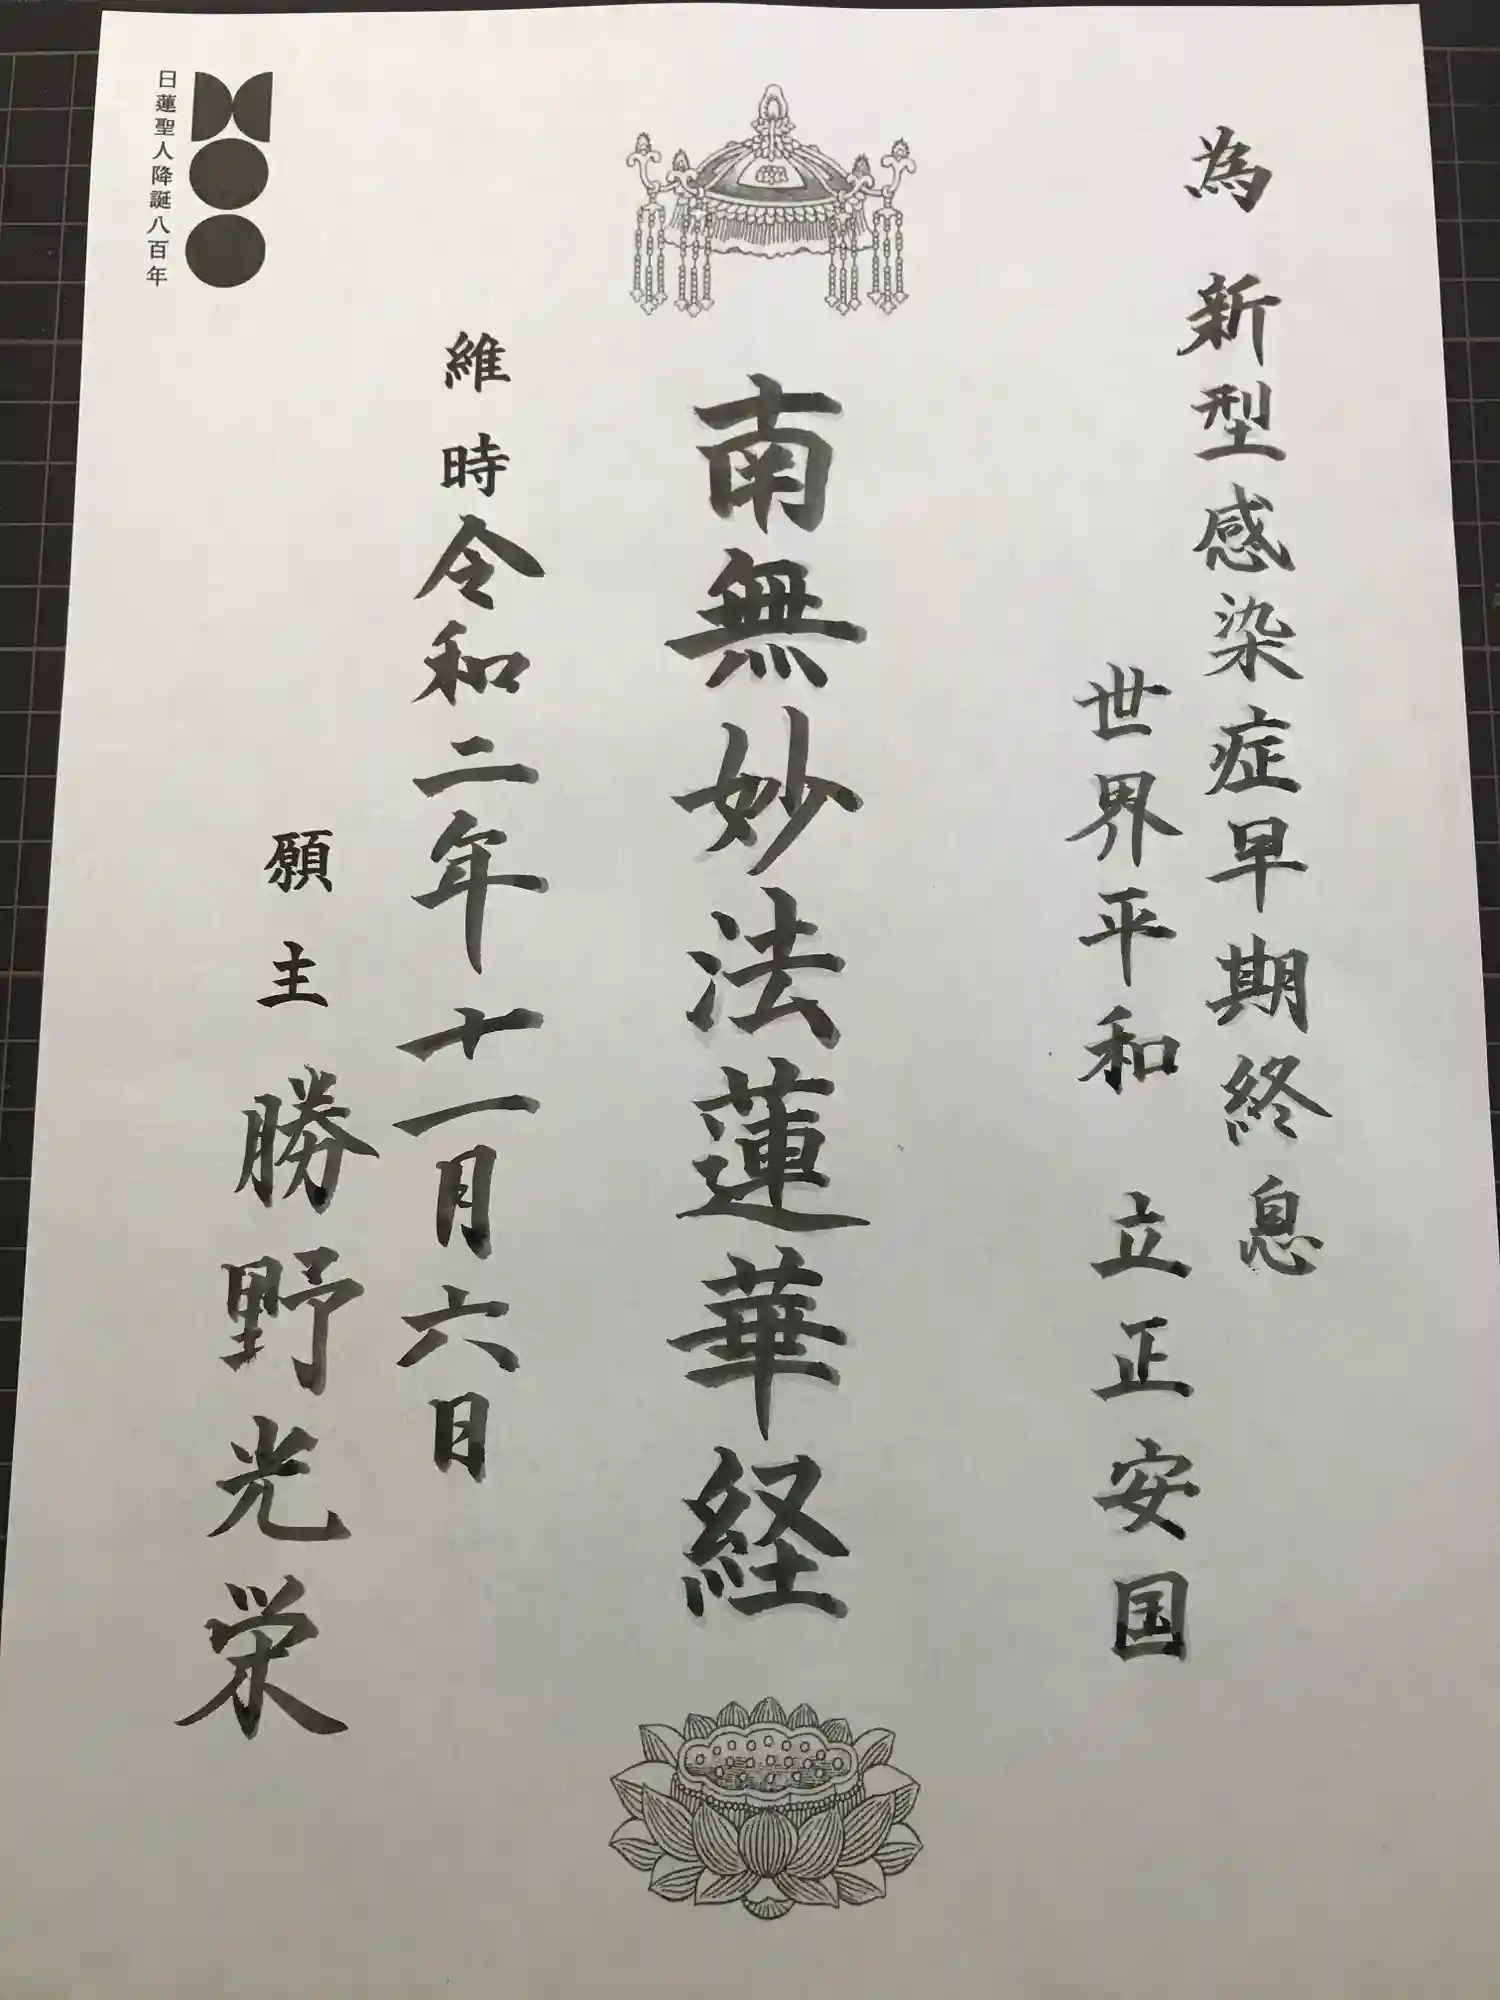 為 新型感染症早期終息
世界平和 立正安国
南無妙法蓮華経
維時令和二年十一月六日
願主 勝野光栄
日蓮聖人降誕八百年